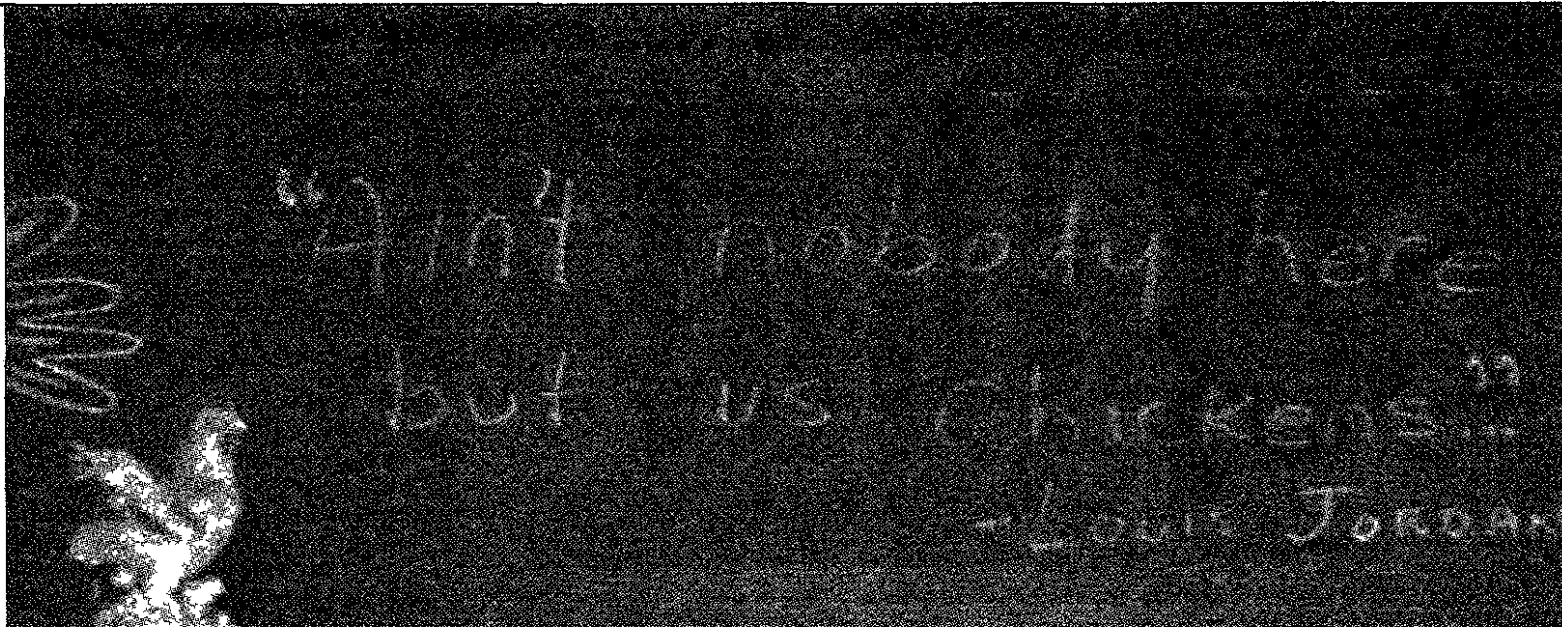 “Ain't nobody here
but us chickens...”
- Louis JORDAN